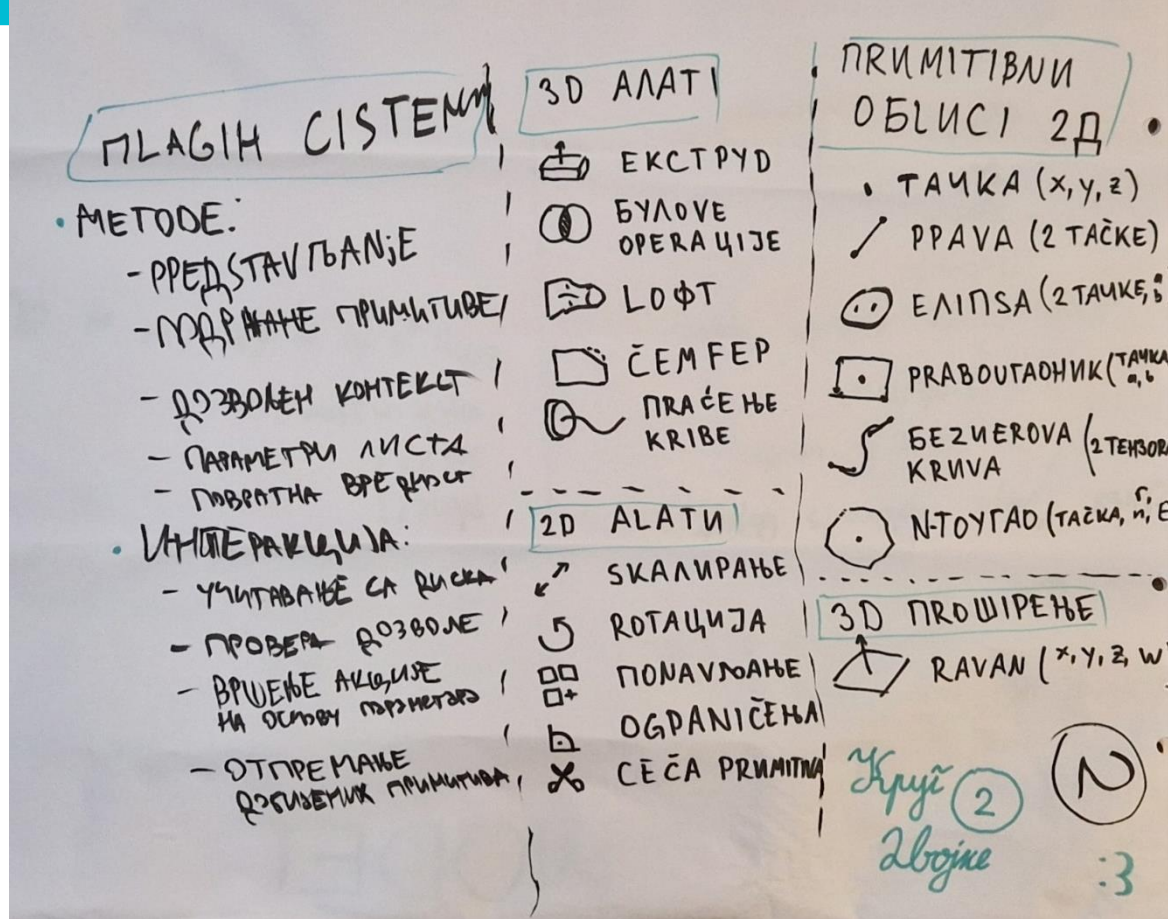 ПLAGIH CISTEMИ
• METODE:
- PPEДSTAVЉANjE
- ПОДРЖАНЕ ПРИМИТИВЕ
- ДОЗВОЛЕН КОНТЕКСТ
- ПАРАМЕТРИ ЛИСТА
- ПОВРАТНА ВРЕДНОСТ
• ИНТЕРАКЦИЈА:
- УЧИТАВАЊЕ СА ДИСКА
- ПРОВЕРА ДОЗВОЛЕ
- ВРШЕЊЕ АКЦИЈЕ
НА ОСНОВУ ПАРАМЕТАРА
- ОТПРЕМАЊЕ
ДОБИЈЕНИХ ПРИМИТИВА
3D АЛАТI
ЕКСТРУD
БУЛОVE
OPERAЦИЈЕ
LOФТ
ČEMFEP
ПRAĆEЊE
KRIBE
2D ALATИ
SKAЛИРАЊЕ
ROTAЦИЈА
ПОNAVЉAЊE
OGPANIČEЊA
CEČA PRИMITИVA
ПRИMITIBNИ
OБLИCI 2Д
• TAЧKA (x, y, z)
PPAVA (2 TAČKE)
EЛIПSA (2 TAЧKE,
PRABOUГAOHИK (TAЧKA
a, b
БEZИEROVA (2 TEHSORA
KRИVA
N-TOУГAO (TAČKA, r, n,
3D ПROШIREЊE
RAVAN (x, y, z, w
Круг 2
двојке
N
:3